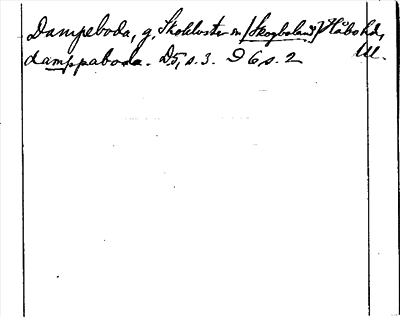 Dampeboda, g. Skokloster sn [Skogboland] Håbo hd, Ul.
damppaboda. D5, s. 3. D 6, s. 2